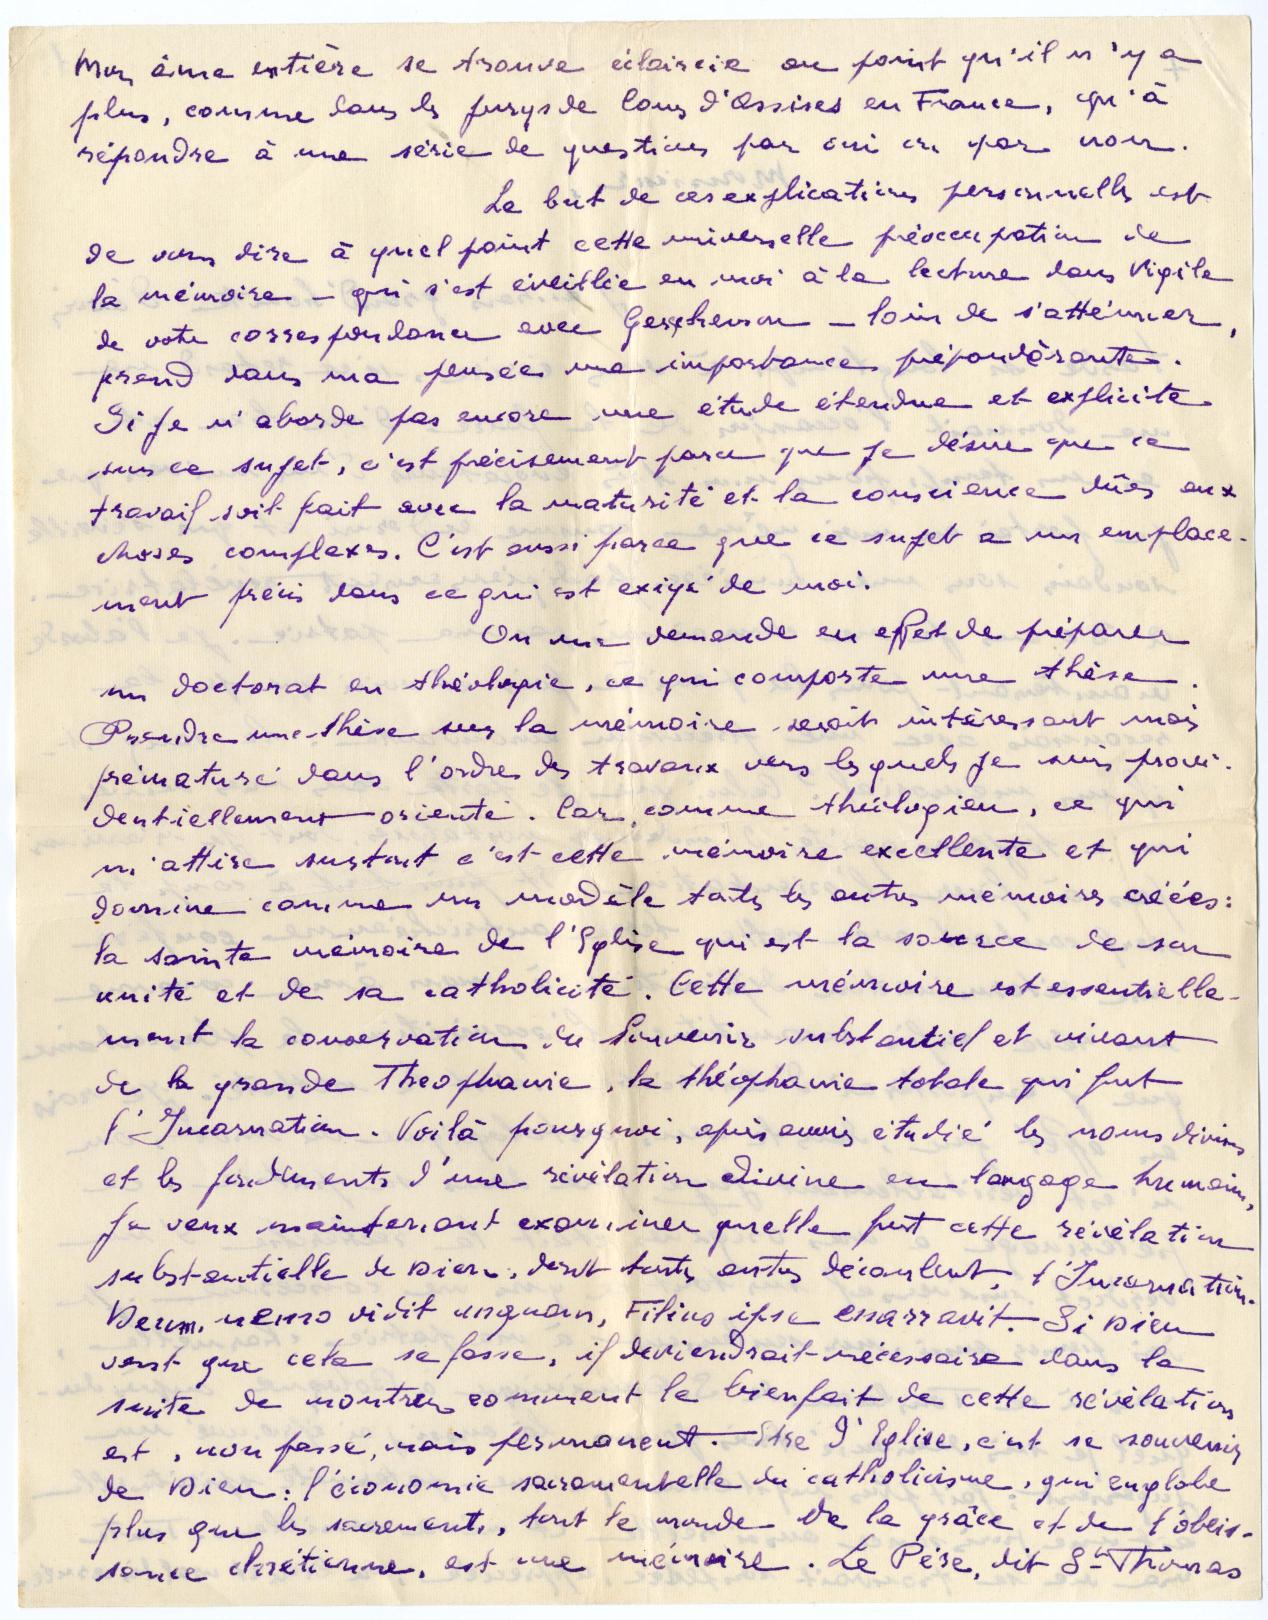 Mon âme entière se trouve éclaircie au point qu'il n'y a
plus, comme dans les jurys de Cours d'Assises en France, qu'à
répondre à une série de questions par oui ou par non.
Le but de ces explications personnelles est
de vous dire à quel point cette universelle préoccupation de
la mémoire – qui s'est éveillée en moi à la lecture dans Vigile
de votre correspondance avec Gerschenson – loin de s'atténuer,
prend dans ma pensée une importance prépondérante.
Si je n'aborde pas encore une étude étendue et explicite
sur ce sujet, c'est précisément parce que je désire que ce
travail soit fait avec la maturité et la conscience dûes aux
choses complexes. C'est aussi parce que ce sujet a un emplace-
ment précis dans ce qui est exigé de moi.
On me demande en effet de préparer
un doctorat en théologie, ce qui comporte une thèse.
Prendre une thèse sur la mémoire serait intéressant mais
prématuré dans l'ordre des travaux vers lesquels je suis provi-
dentiellement orienté. Car, comme théologien, ce qui
m'attire surtout c'est cette mémoire excellente et qui
domine comme un modèle toutes les autres mémoires créées:
la sainte mémoire de l'Eglise qui est la source de son
unité et de sa catholicité. Cette mémoire est essentielle-
ment la conservation du Souvenir substantiel et vivant
de la grande Théophanie, la théophanie totale qui fut
l'Incarnation. Voilà pourquoi, après avoir étudié les noms divins
et les fondements d'une révélation divine en langage humain,
je veux maintenant examiner quelle fut cette révélation
substantielle de Dieu, dont toutes autres découlent, l'Incarnation.
Deum, nemo vidit unquam, Filius ipse enarravit. Si Dieu
veut que cela se fasse, il deviendrait nécessaire dans la
suite de montrer comment le bienfait de cette révélation
est, non passé, mais permanent. Etre l'Eglise, c'est se souvenir
de Dieu: l'économie sacramentelle du catholicisme, qui englobe
plus que les sacrements, tout le monde de la grâce et de l'obéis-
sance chrétienne, est une mémoire. Le Père, dit St Thomas